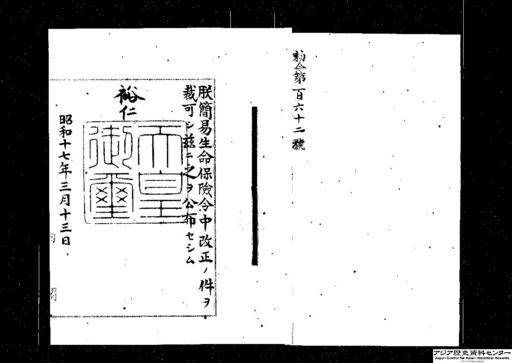 勅令第百六十二號
朕簡易生命保險令中改正ノ件ヲ
裁可シ茲ニ之ヲ公布セシム
裕仁
天皇御璽
昭和十七年三月十三日
アジア歴史資料センター
Japan Center for Asian Historical Records